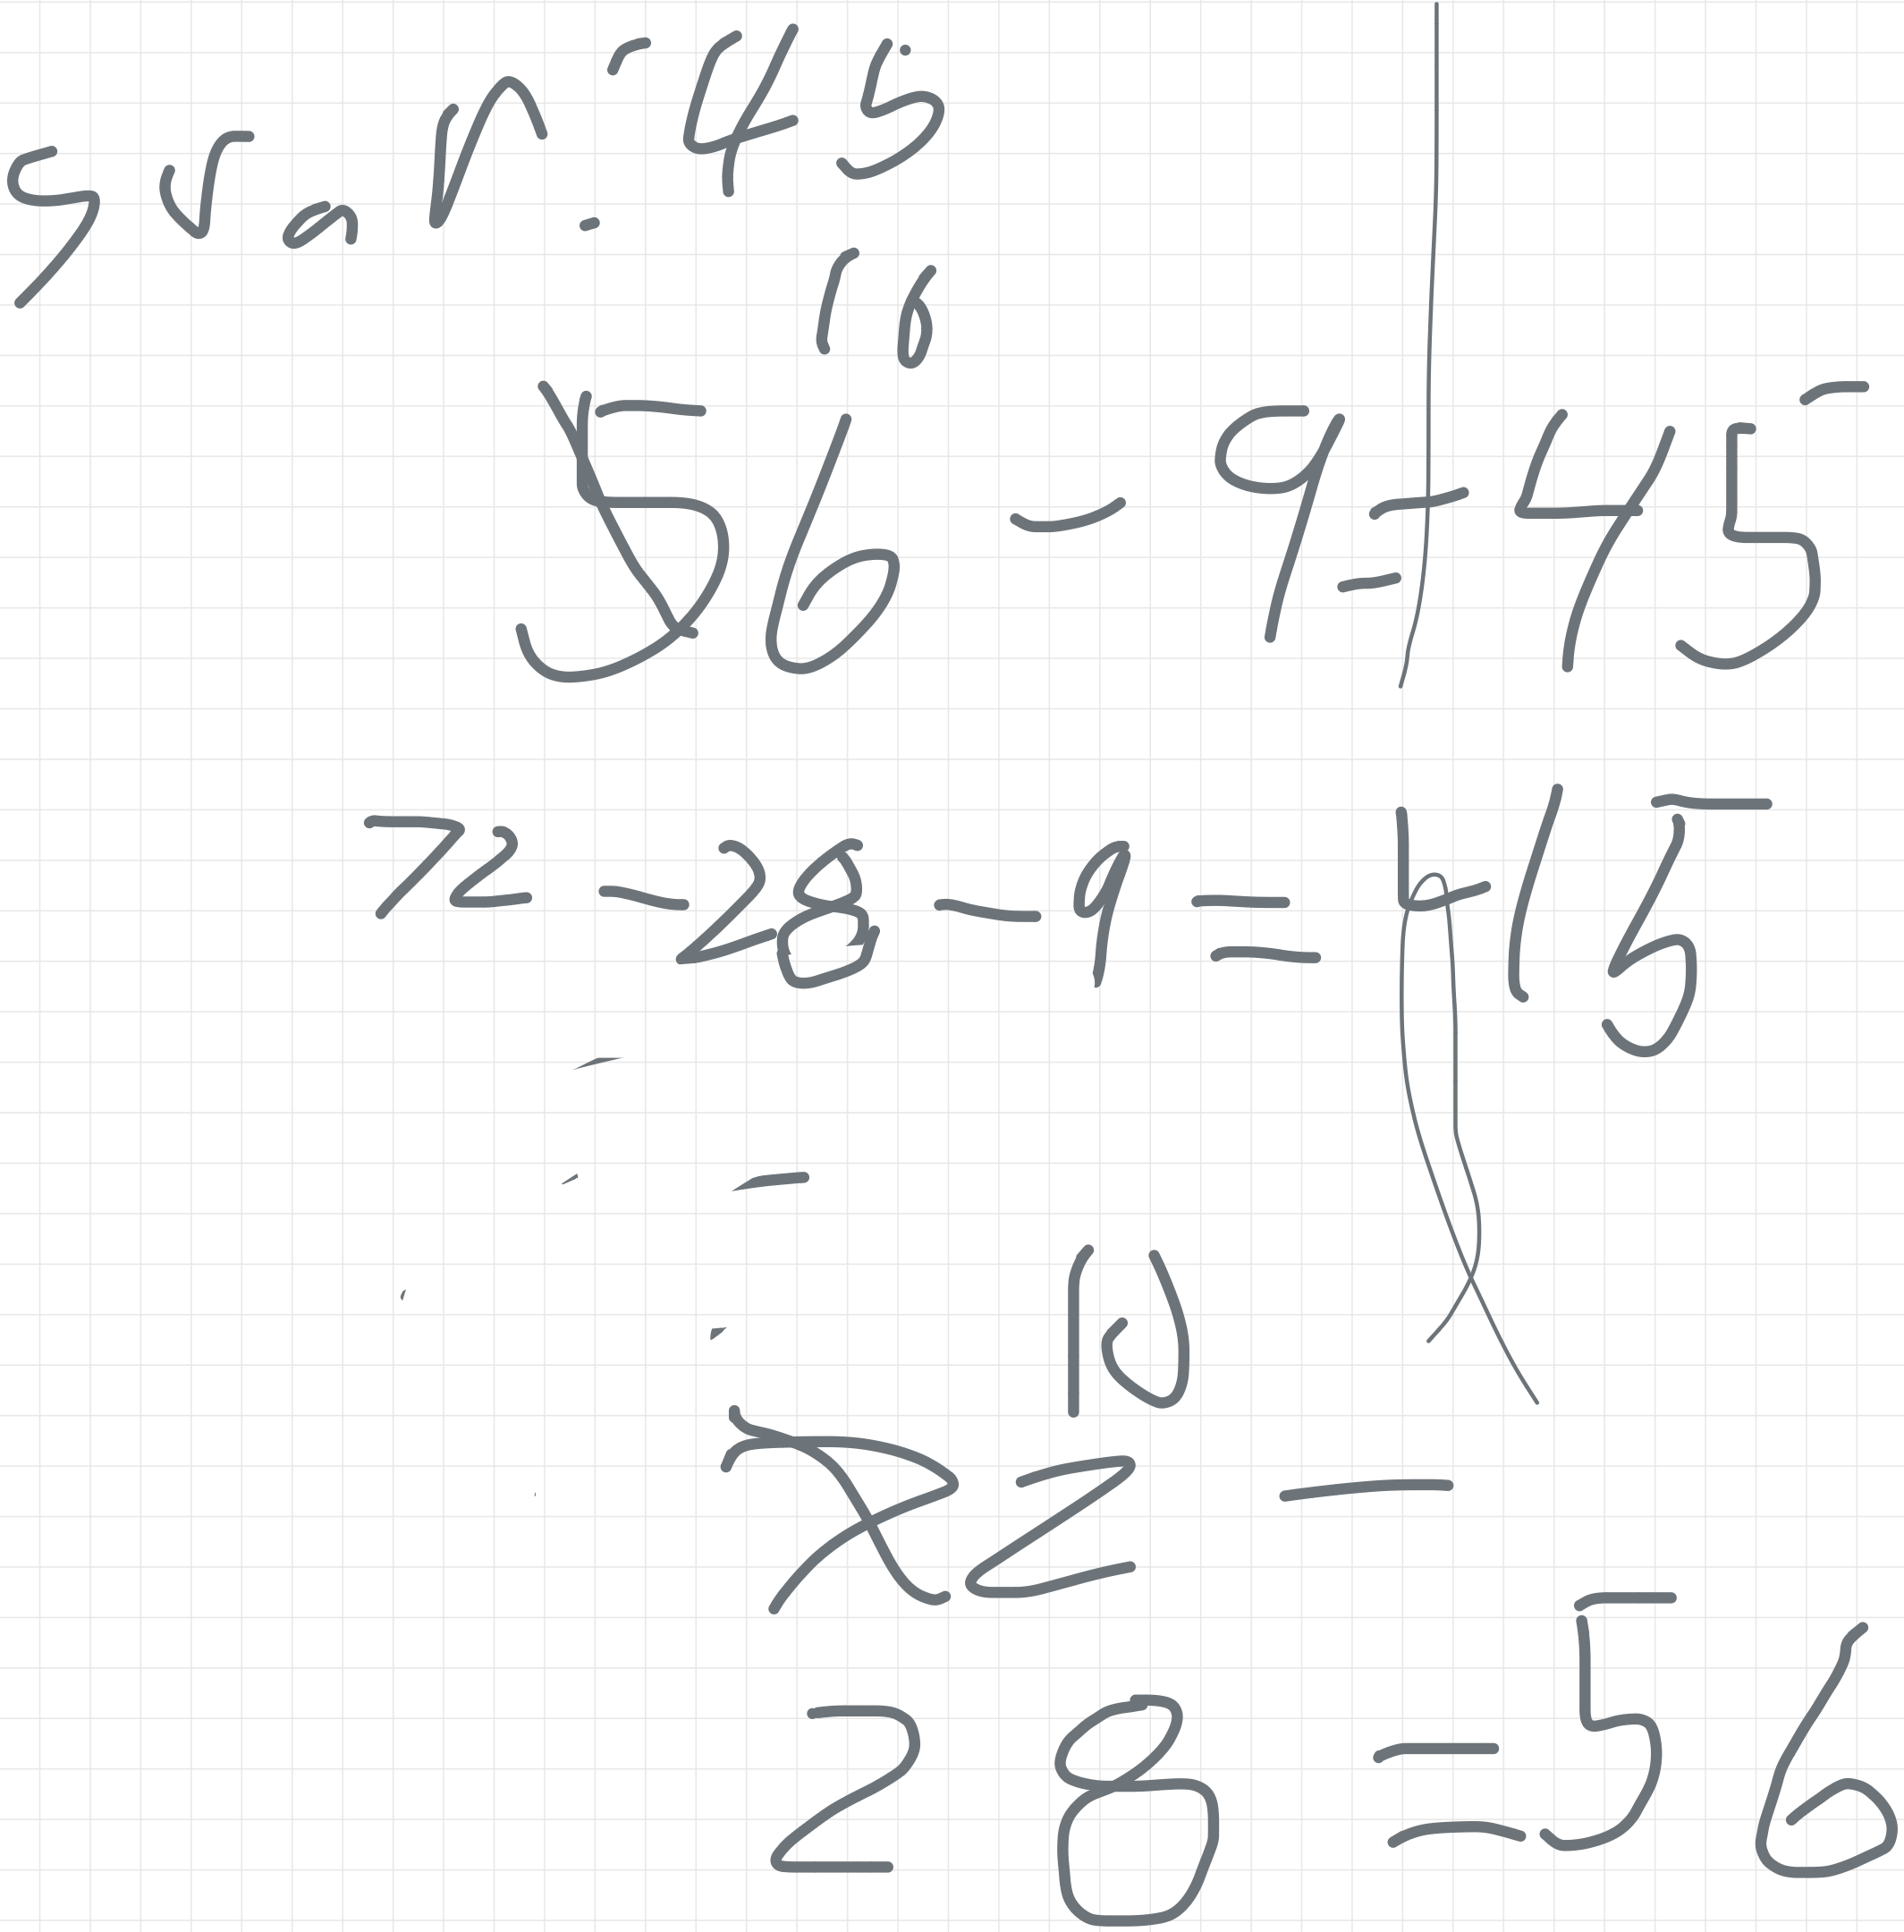 Svar: 45
10
56 - 9 = 45
72 - 28 - 9 = 45
10
72 -
28 = 56